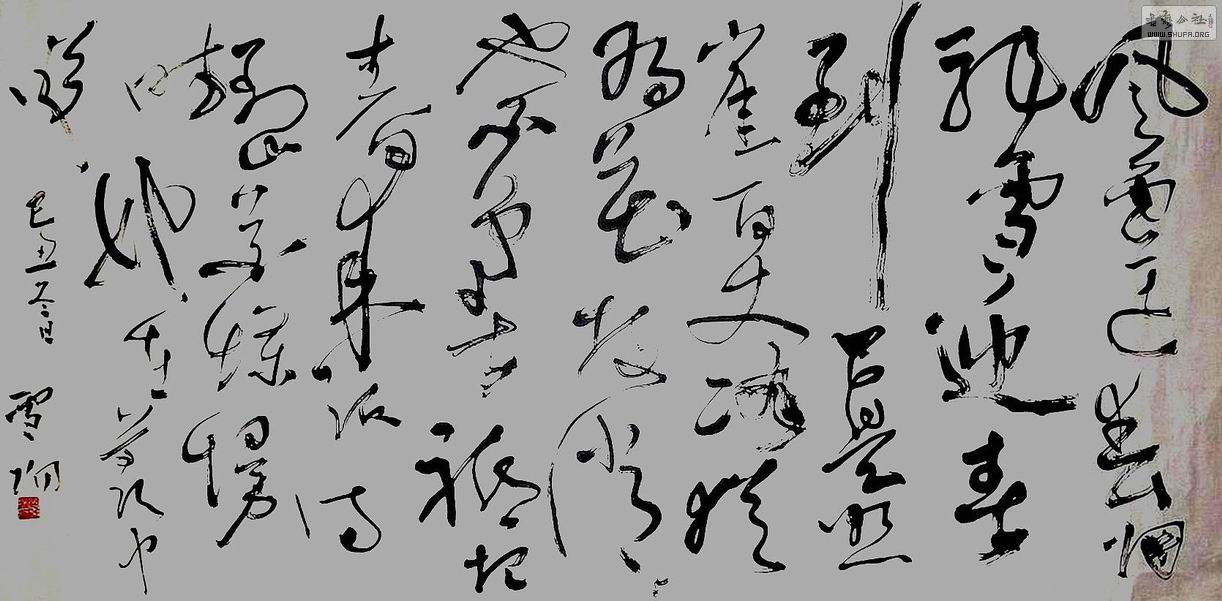 风雨送春归
飛雪迎春
到已是悬
崖百丈冰犹
有花枝俏
也不争春祇把
春来报待
到山花爛漫
时她在丛中
笑
己丑冬日
WWW.SHUFA.ORG